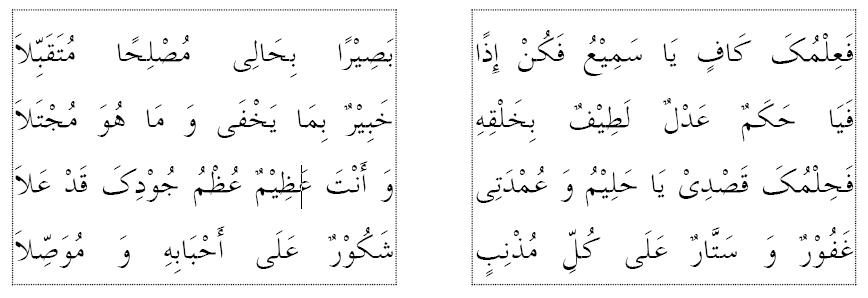 فَعِلْمُکَ کَافٍ یَا سَمِیْعُ فَکُنْ إِذًا بَصِیْرًا بِحَالِی مُصْلِحًا مُتَقَبِّلاَ
فَیَا حَکَمٌ عَدْلٌ لَطِیْفٌ بِخَلْقِهِ خَبِیْرٌ بِمَا یَخْفَی وَ مَا هُوَ مُجْتَلاَ
فَحِلْمُکَ قَصْدِیْ یَا حَلِیْمُ وَ عُمْدَتِی وَ أَنْتَ عَظِیْمٌ عُظْمُ جُوْدِکَ قَدْ عَلاَ
غَفُوْرٌ وَ سَتَّارٌ عَلَی کُلِّ مُذْنِبٍ شَکُوْرٌ عَلَی أَحْبَابِهِ وَ مُوَصِّلاَ